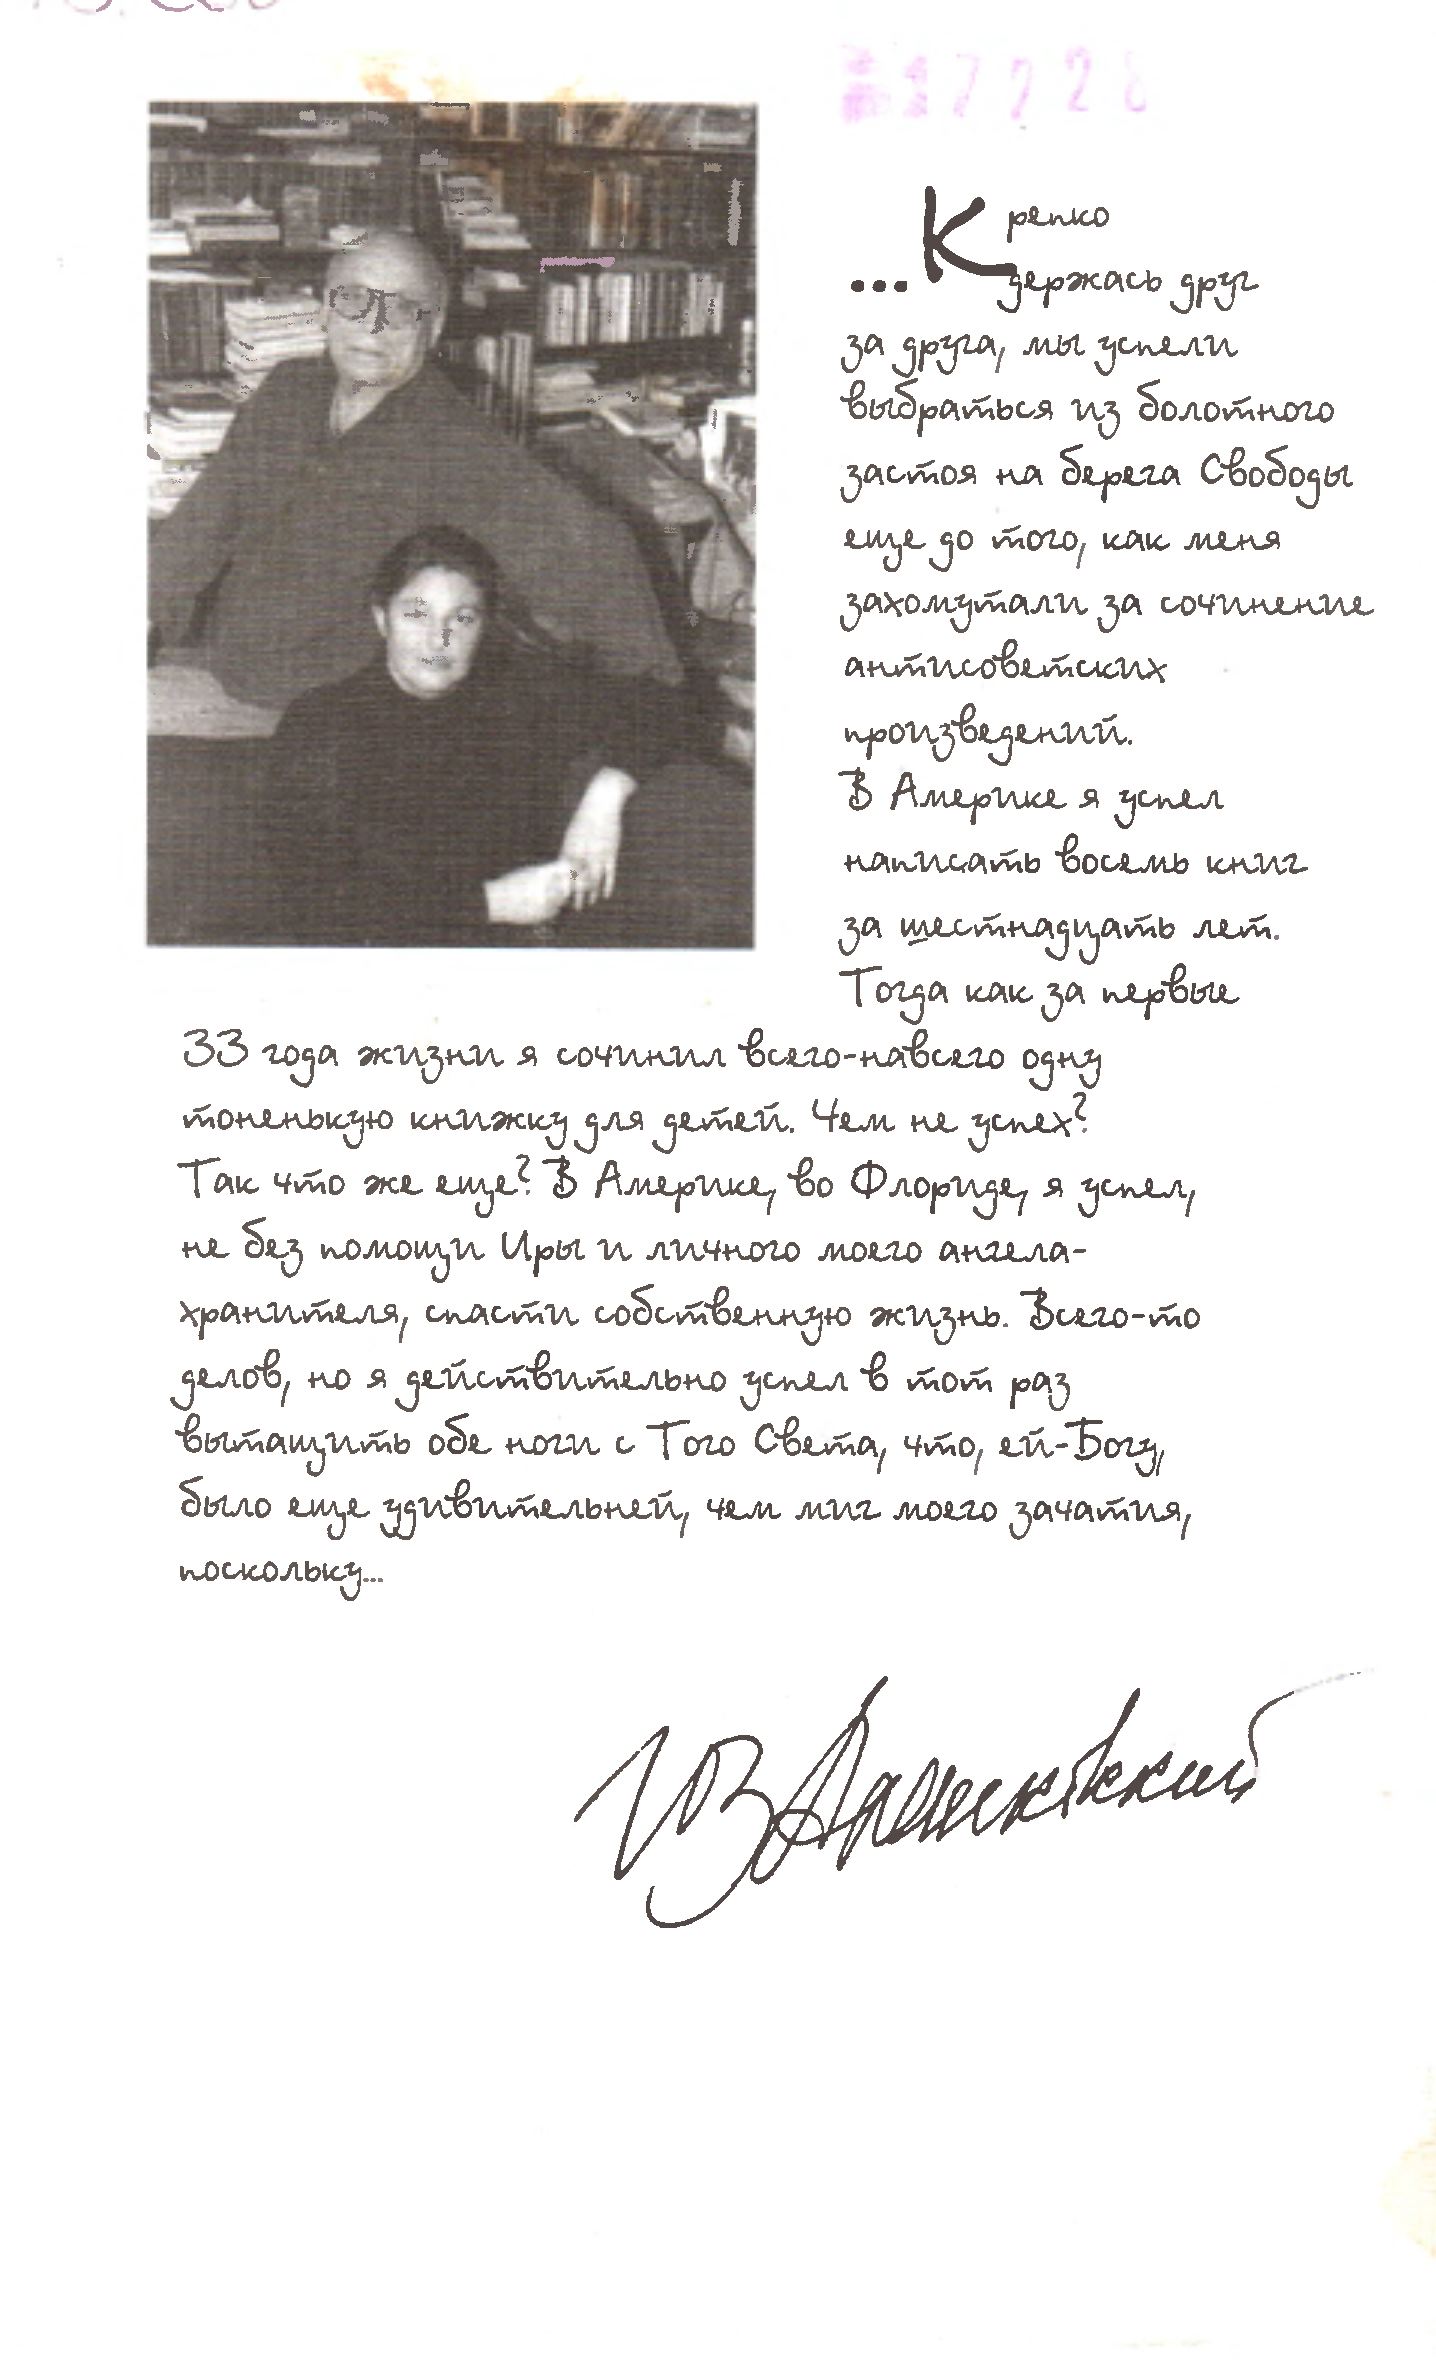 ...Крепко
держась друг
за друга, мы успели
выбраться из болотного
застоя на берега Свободы
еще до того, как меня
захомутали за сочинение
антисоветских
произведений.
В Америке я успел
написать восемь книг
за шестнадцать лет.
Тогда как за первые
33 года жизни я сочинил всего-навсего одну
тоненькую книжку для детей. Чем не успех?
Так что же еще? В Америке, во Флориде, я успел,
не без помощи Иры и личного моего ангела-
хранителя, спасти собственную жизнь. Всего-то
делов, но я действительно успел в тот раз
вытащить обе ноги с Того Света, что, ей-Богу,
было еще удивительней, чем миг моего зачатия,
поскольку...